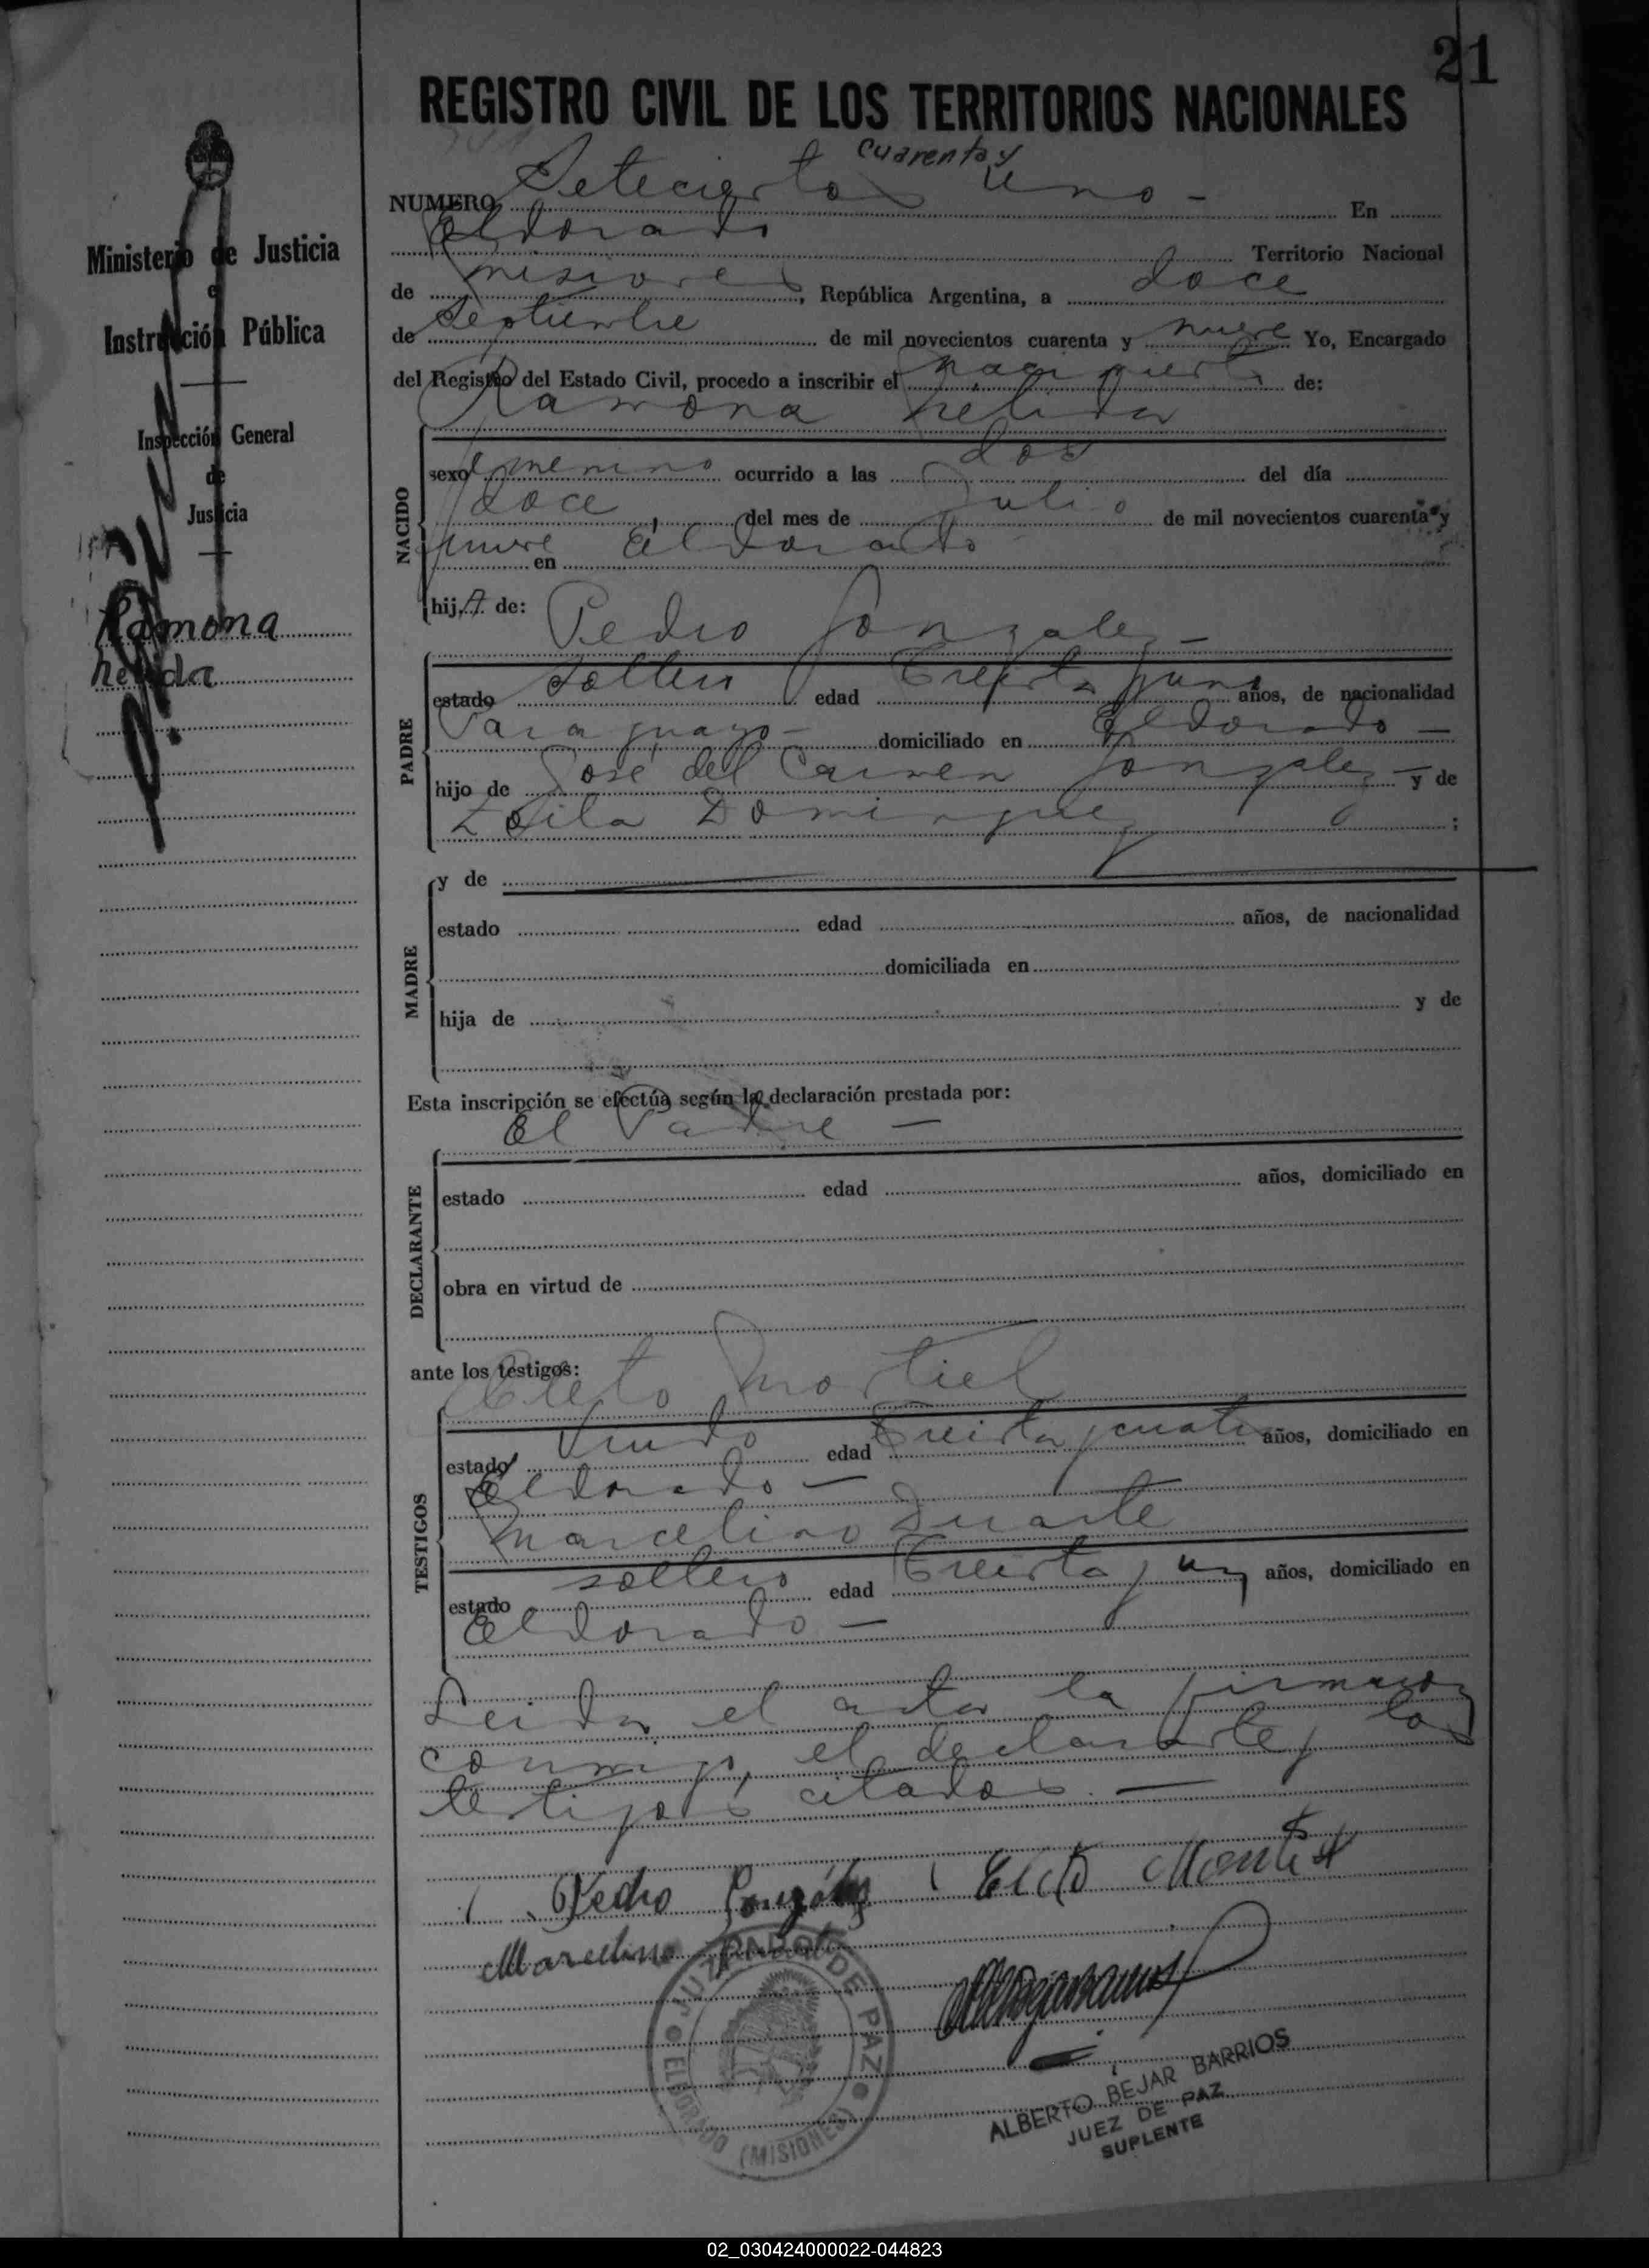 21
REGISTRO CIVIL DE LOS TERRITORIOS NACIONALES
cuarenta y
NUMERO Setecientos uno - En
Eldorado Territorio Nacional
de Misiones, República Argentina, a doce
de Septiembre de mil novecientos cuarenta y nueve Yo, Encargado
del Registro del Estado Civil, procedo a inscribir el nacimiento de:
Ramona nelida
NACIDO
sexo femenino ocurrido a las dos del día
doce del mes de Julio de mil novecientos cuarenta y
nueve en Eldorado
hija de: Pedro Gonzalez -
PADRE
estado soltero edad Treinta y uno años, de nacionalidad
Paraguayo - domiciliado en Eldorado -
hijo de José del Carmen Gonzalez - y de
Zoila Dominguez ;
MADRE
y de
estado edad años, de nacionalidad
domiciliada en
hija de y de
Esta inscripción se efectúa según la declaración prestada por:
El Padre -
DECLARANTE
estado edad años, domiciliado en
obra en virtud de
ante los testigos:
Cleto Montiel
TESTIGOS
estado Viudo edad Treinta y cuatro años, domiciliado en
Eldorado -
Marcelino Duarte
estado soltero edad Treinta y un años, domiciliado en
Eldorado -
Leida el acta la firmaron
conmigo, el declarante y los
testigos citados. -
Pedro González Cleto Montiel
Marcelino Duarte
JUZGADO DE PAZ
ELDORADO (MISIONES)
ALBERTO BEJAR BARRIOS
JUEZ DE PAZ
SUPLENTE
Ministerio de Justicia
e
Instrucción Pública
Inspección General
de
Justicia
Ramona
nelida
02_030424000022-044823